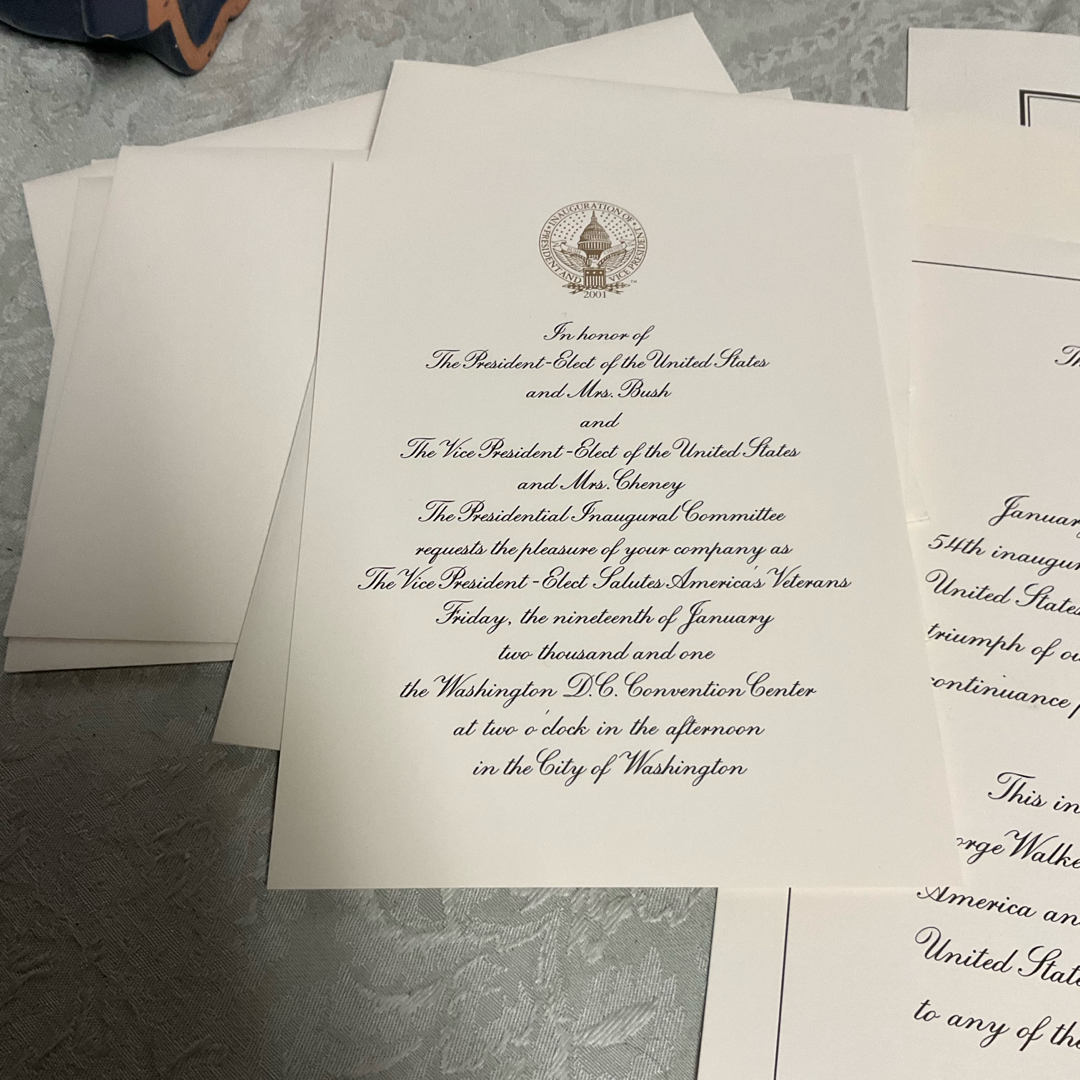 INAUGURATION OF
PRESIDENT AND
VICE PRESIDENT
2001
In honor of
The President-Elect of the United States
and Mrs. Bush
and
The Vice President-Elect of the United States
and Mrs. Cheney
The Presidential Inaugural Committee
requests the pleasure of your company as
The Vice President-Elect Salutes America's Veterans
Friday, the nineteenth of January
two thousand and one
the Washington D.C. Convention Center
at two o'clock in the afternoon
in the City of Washington
Th
Januar
54th inaugur
United States
triumph of ou
continuance
This in
orge Walke
America an
United State
to any of the